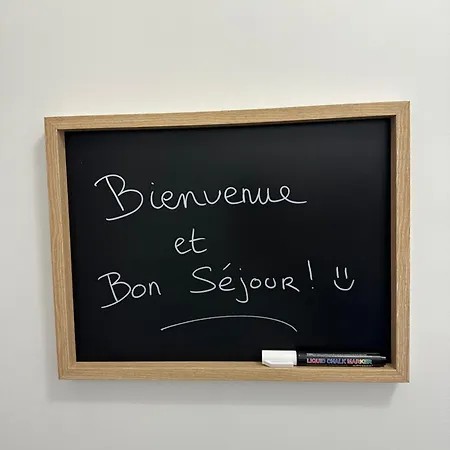 Bienvenue
et
Bon Séjour! :)
LIQUID CHALK MARKER